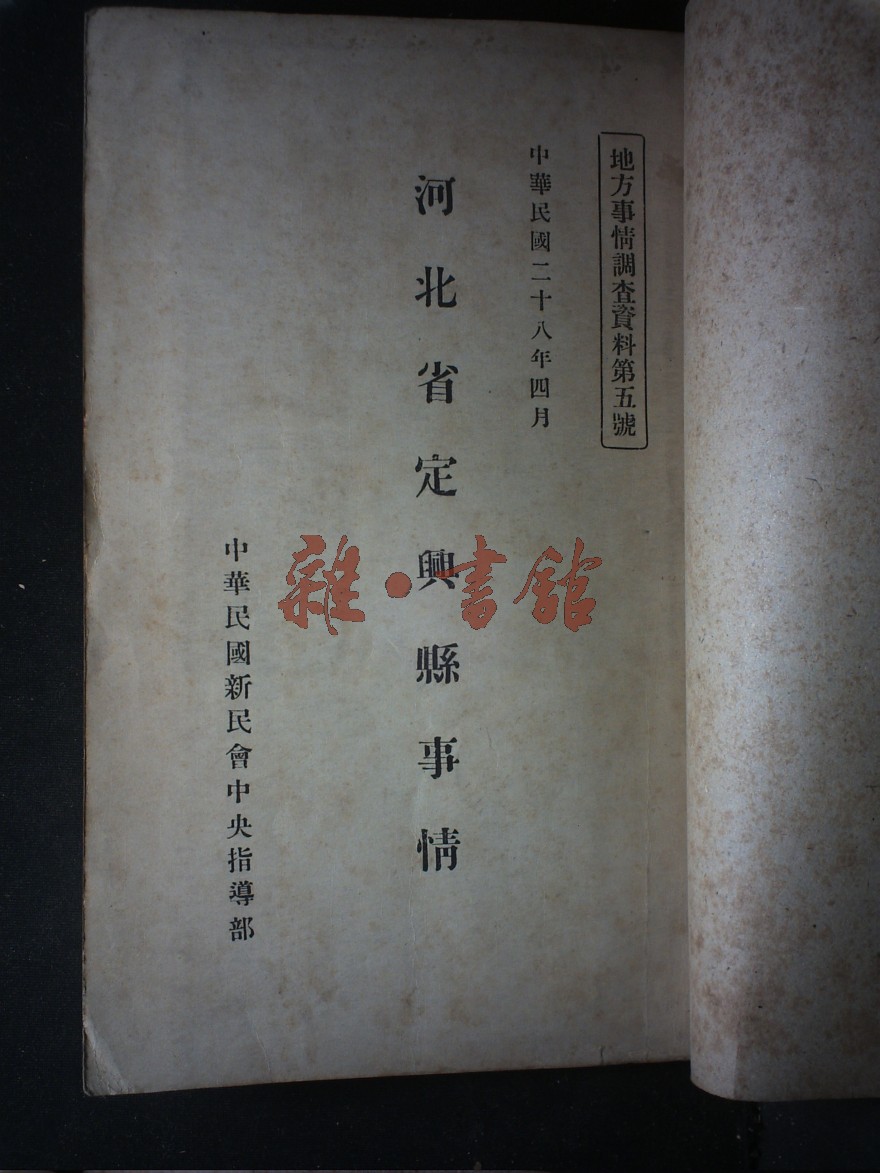 地方事情調查資料第五號
中華民國二十八年四月
河北省定興縣事情
中華民國新民會中央指導部
雜·書館